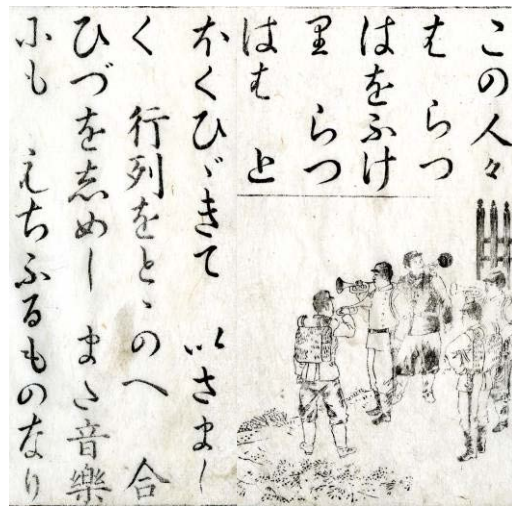 この人々
は らつ
はをふけ
り らつ
はは と
ほくひゞきて いさまし
く 行列をとゝのへ 合
ひづをしめし また音樂
にも もちふるものなり